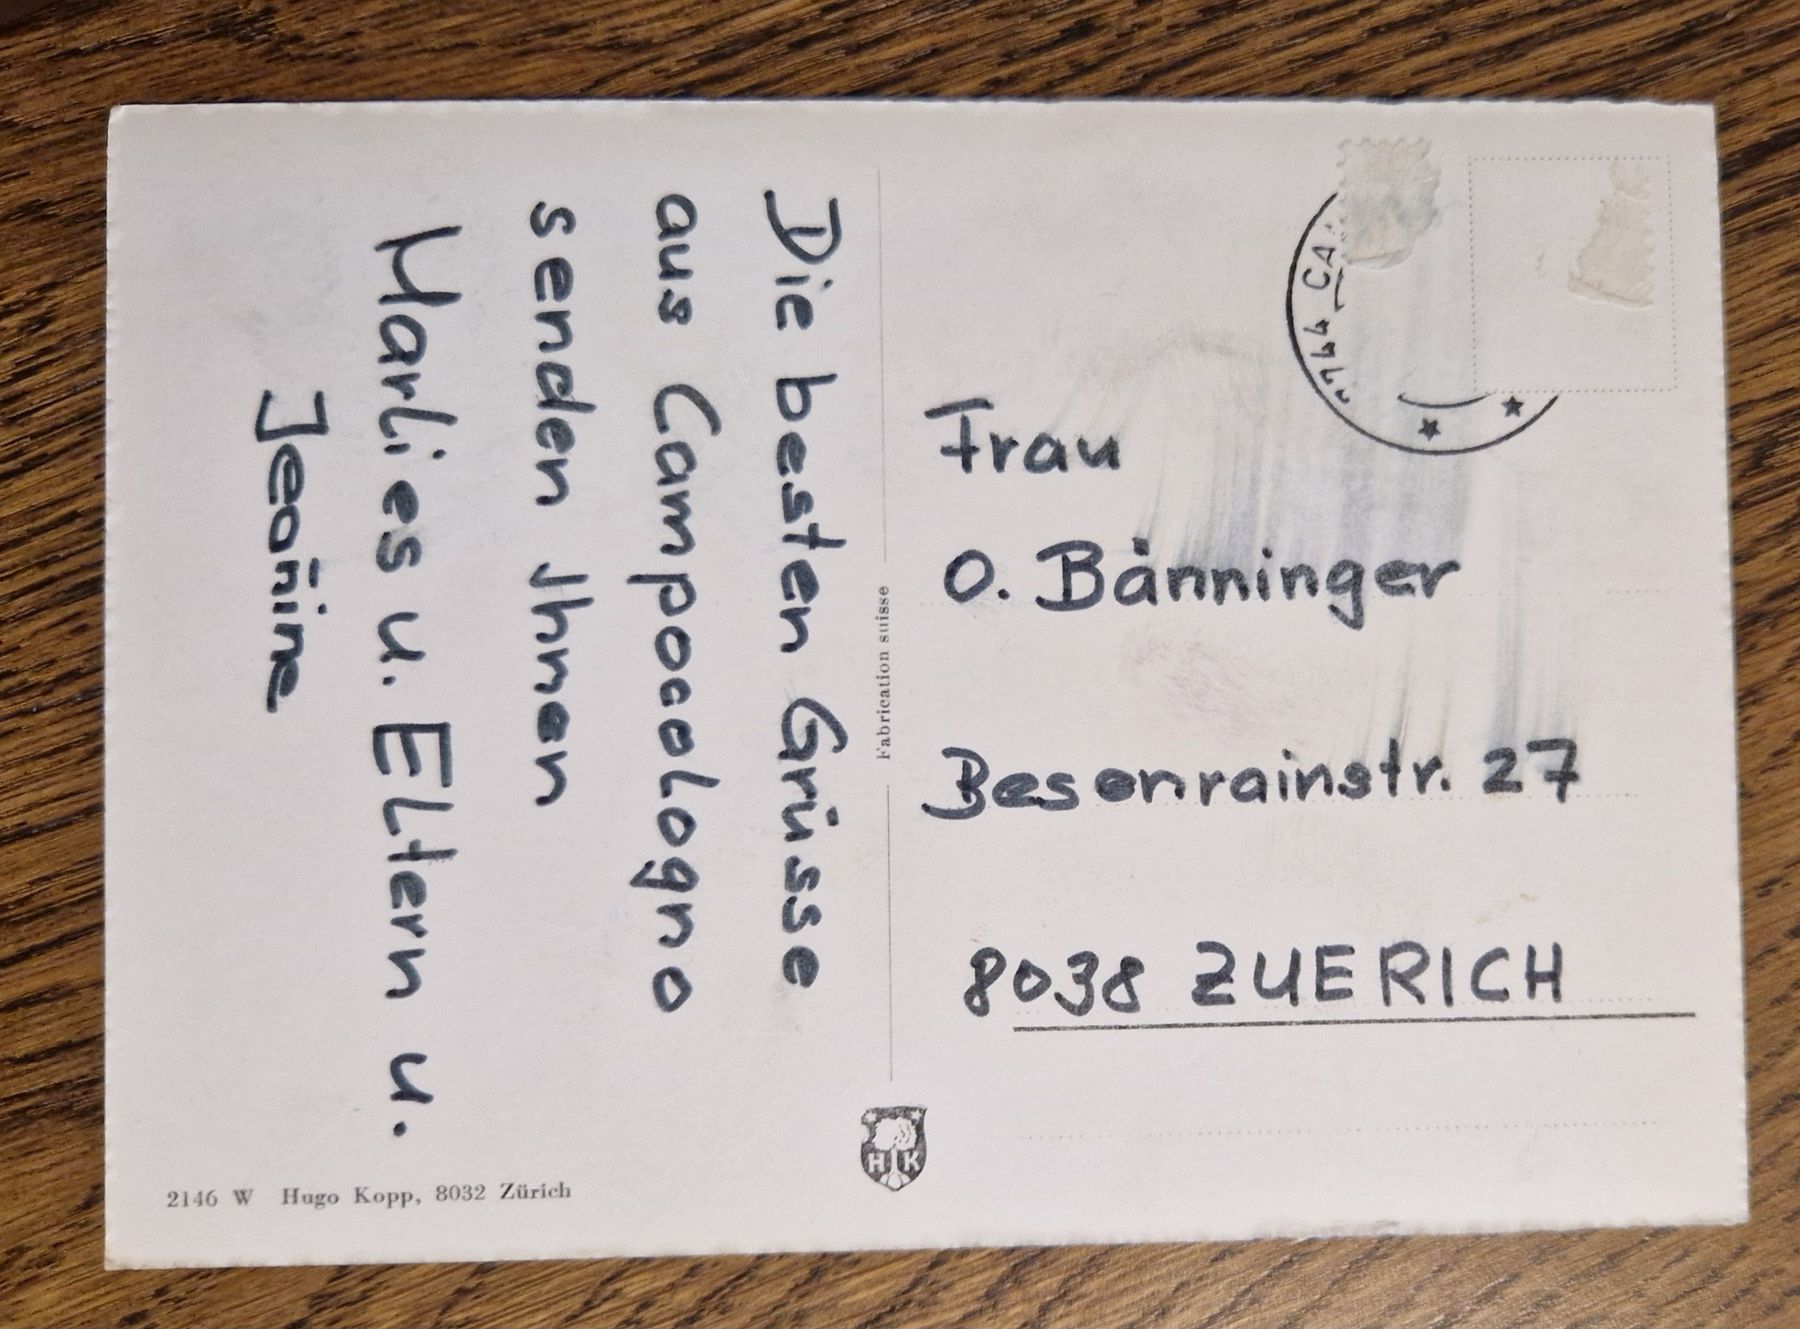 Die besten Grüsse
aus Campocologno
senden Ihnen
Marlies u. Eltern u.
Jeanine
2146 W Hugo Kopp, 8032 Zürich
Fabrication suisse
HK
7744 CA
Frau
O. Bänninger
Besenrainstr. 27
8038 ZUERICH